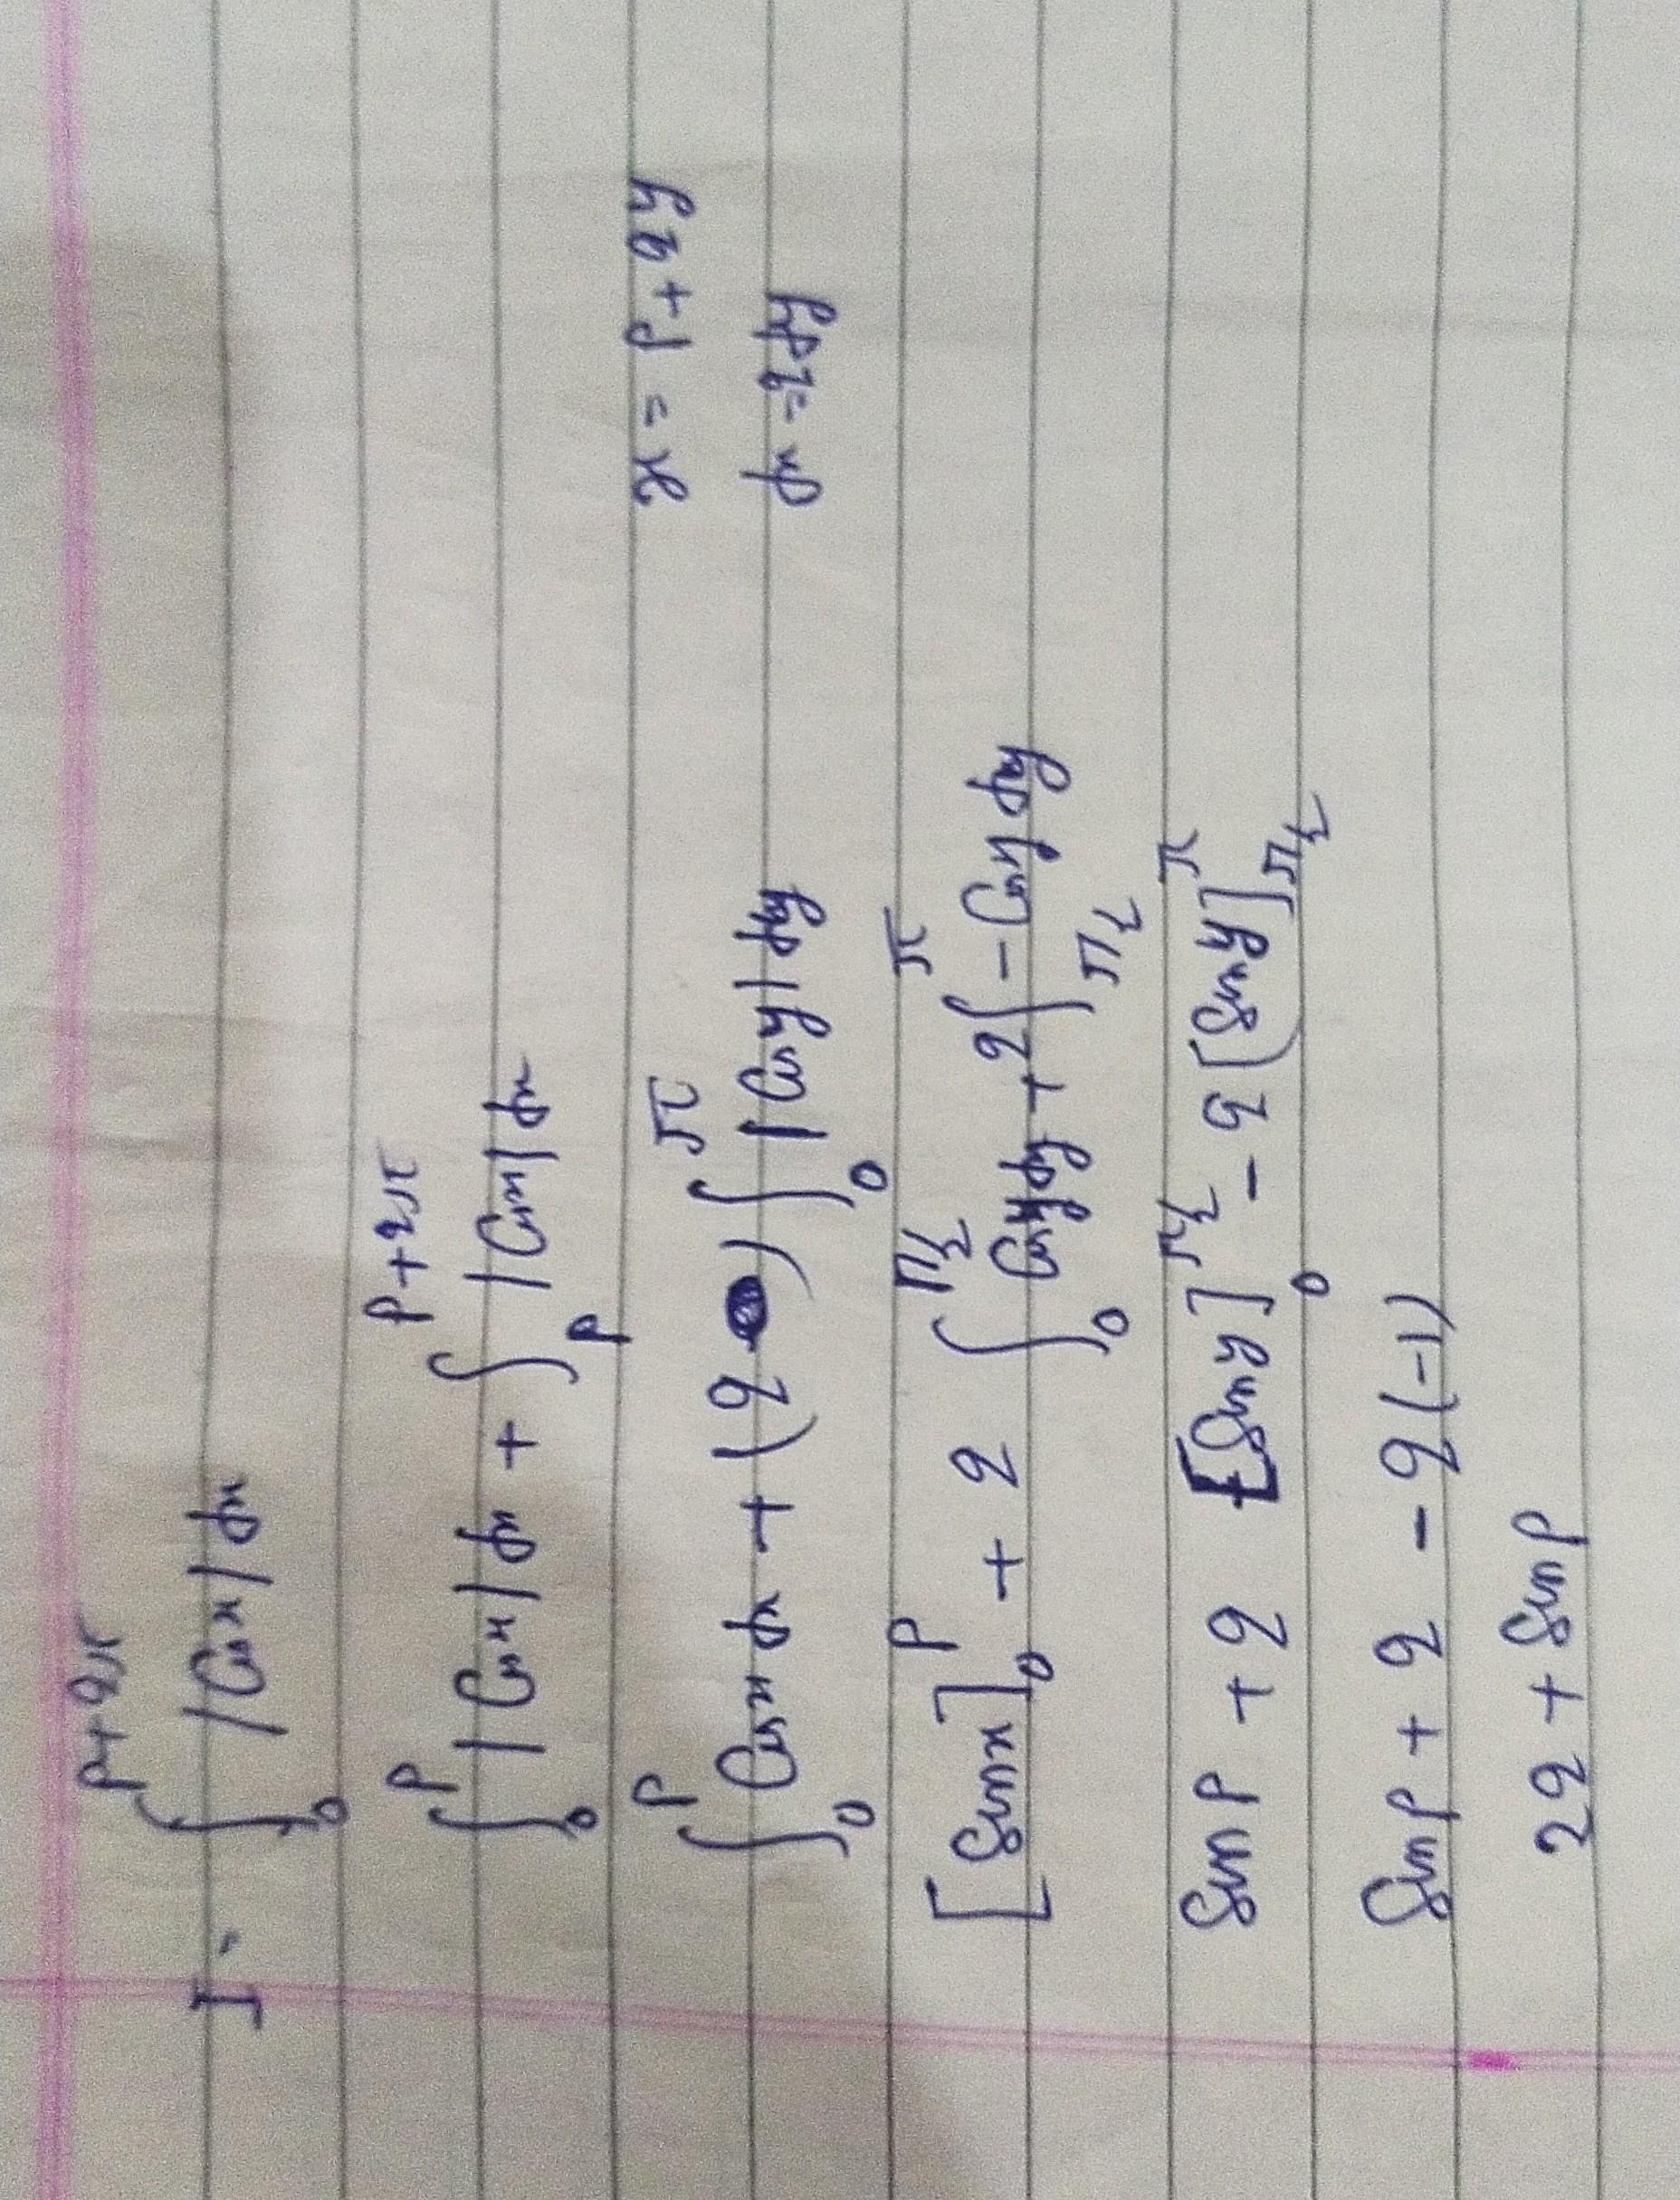 I = ∫₀^{p+qπ} |Cos x| dx
∫₀^p |Cos x| dx + ∫_p^{p+qπ} |Cos x| dx
x = p + qy
∫₀^p Cos x dx + (q ) ∫₀^π |Cos y| dy
dx = q dy
[Sin x]₀^p + q ∫₀^{π/2} Cos y dy + q ∫_{π/2}^π - Cos y dy
Sin p + q [Sin y]₀^{π/2} - q [Sin y]_{π/2}^π
Sin p + q - q(-1)
2q + Sin p